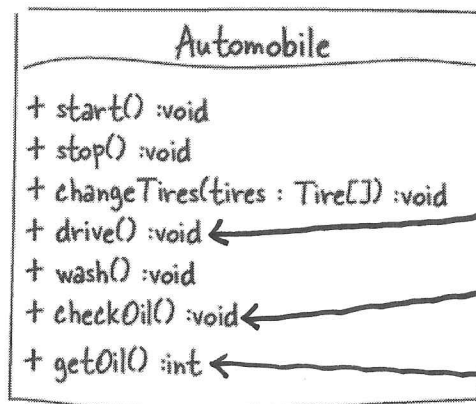 Automobile
+ start() :void
+ stop() :void
+ changeTires(tires : Tire[]) :void
+ drive() :void
+ wash() :void
+ checkOil() :void
+ getOil() :int